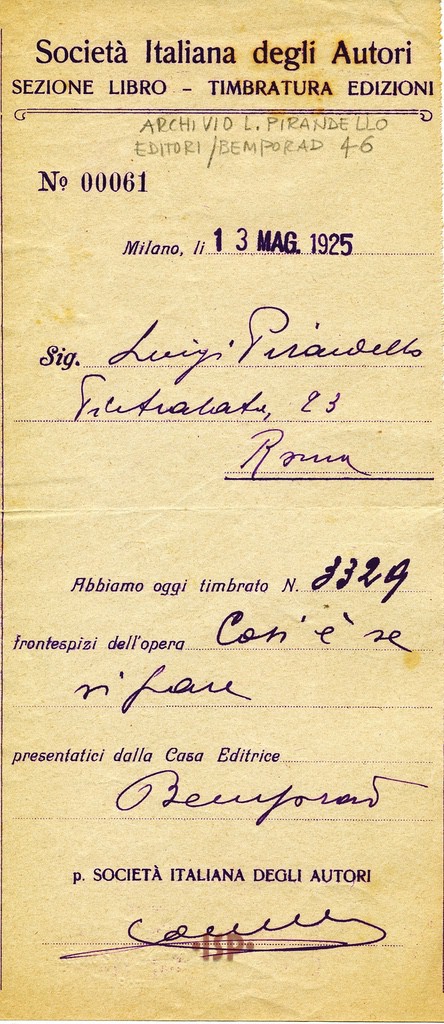 Società Italiana degli Autori
SEZIONE LIBRO - TIMBRATURA EDIZIONI
ARCHIVIO L. PIRANDELLO
EDITORI/BEMPORAD 46
Nº 00061
Milano, li 13 MAG. 1925
Sig. Luigi Pirandello
Pietralata, 23
Roma
Abbiamo oggi timbrato N. 3329
frontespizi dell'opera Così è se
vi pare
presentatici dalla Casa Editrice
Bemporad
p. SOCIETÀ ITALIANA DEGLI AUTORI
.ISP.